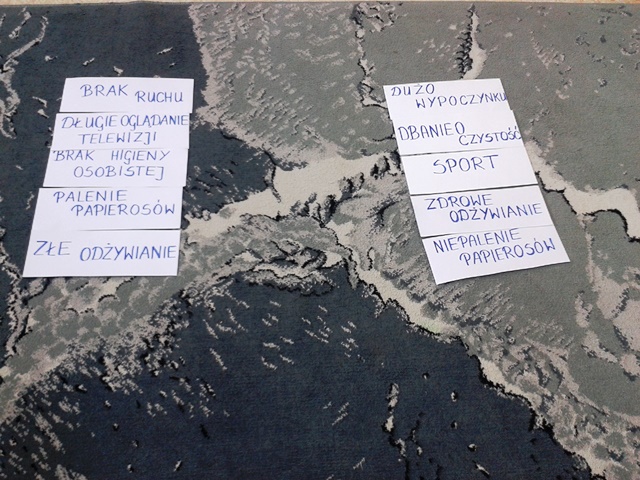 BRAK RUCHU
DŁUGIE OGLĄDANIE
TELEWIZJI
BRAK HIGIENY
OSOBISTEJ
PALENIE
PAPIEROSÓW
ZŁE ODŻYWIANIE
DUŻO
WYPOCZYNKU
DBANIE O CZYSTOŚĆ
SPORT
ZDROWE
ODŻYWIANIE
NIEPALENIE
PAPIEROSÓW